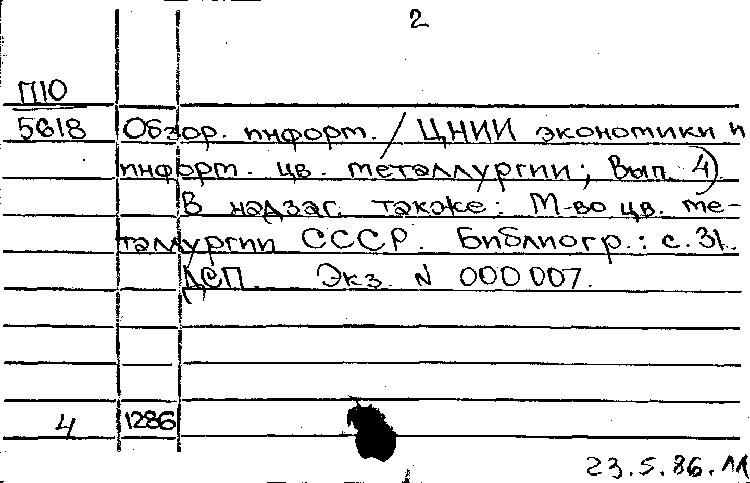 2
П10
5618 Обзор. информ. / ЦНИИ экономики и
информ. цв. металлургии; Вып. 4).
В надзаг. также: М-во цв. ме-
таллургии СССР. Библиогр.: с. 31.
ДСП. Экз. N 000007.
4 1286
23.5.86.